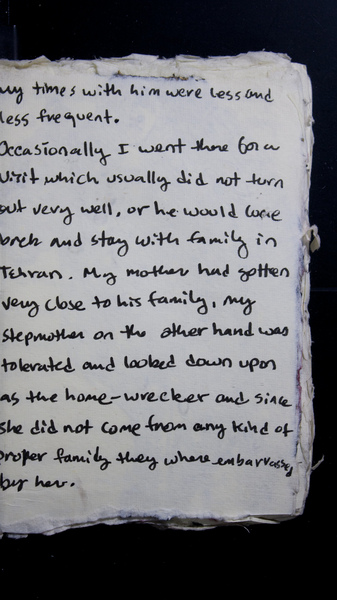 my times with him were less and
less frequent.
Occasionally I went there for a
visit which usually did not turn
out very well, or he would come
back and stay with family in
Tehran. My mother had gotten
very close to his family, my
stepmother on the other hand was
tolerated and looked down upon
as the home-wrecker and since
she did not come from any kind of
proper family they where embarrassed
by her.